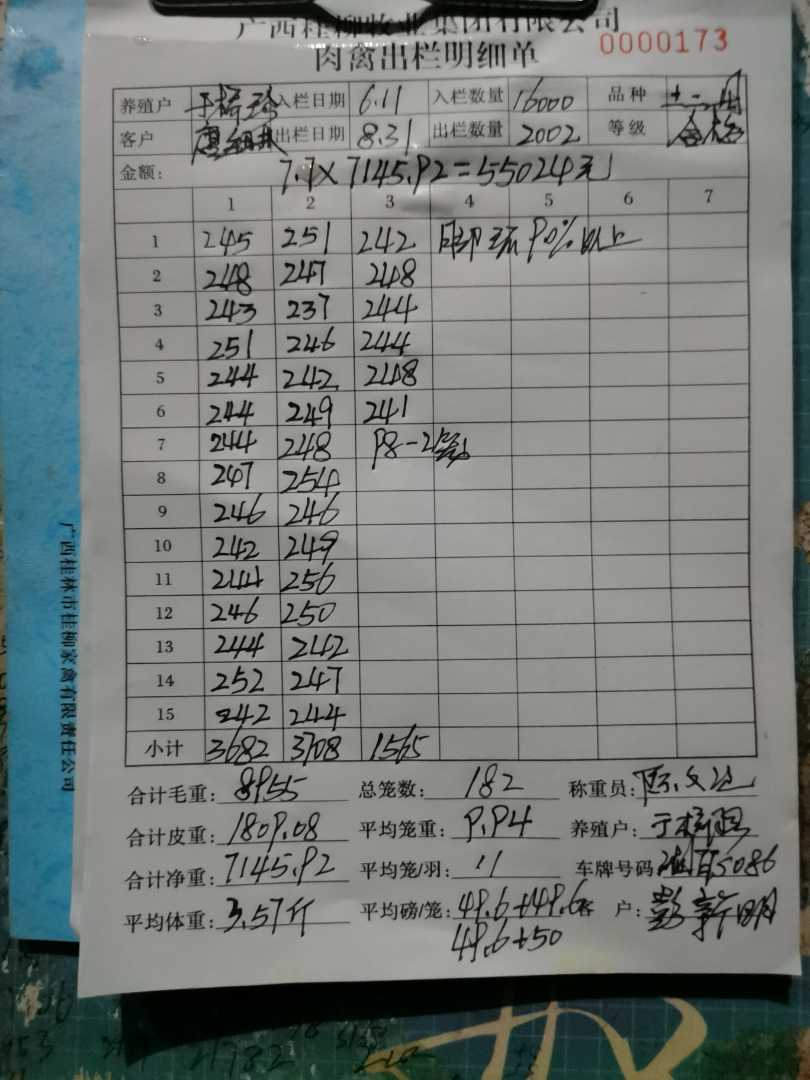 广西桂柳牧业集团有限公司
肉禽出栏明细单 0000173
养殖户 入栏日期 6.11 入栏数量 16000 品种
客户 出栏日期 8.31 出栏数量 2002 等级 合格
金额: 7.7×7145.92=55024元
1 2 3 4 5 6 7
1 245 251 242 90%以上
2 248 247 248
3 243 237 244
4 251 246 244
5 244 242 248
6 244 249 241
7 244 248 P8-2
8 247 254
9 246 246
10 242 249
11 244 256
12 246 250
13 244 242
14 252 247
15 242 244
小计 3682 3708 1565
合计毛重: 8955 总笼数: 182 称重员:
合计皮重: 1809.08 平均笼重: 9.94 养殖户:
合计净重: 7145.92 平均笼/羽: 11 车牌号码 5086
平均体重: 3.57斤 平均磅/笼: 49.6+49.6 客户: 彭新明
49.6+50
广西桂林市桂柳家禽有限责任公司